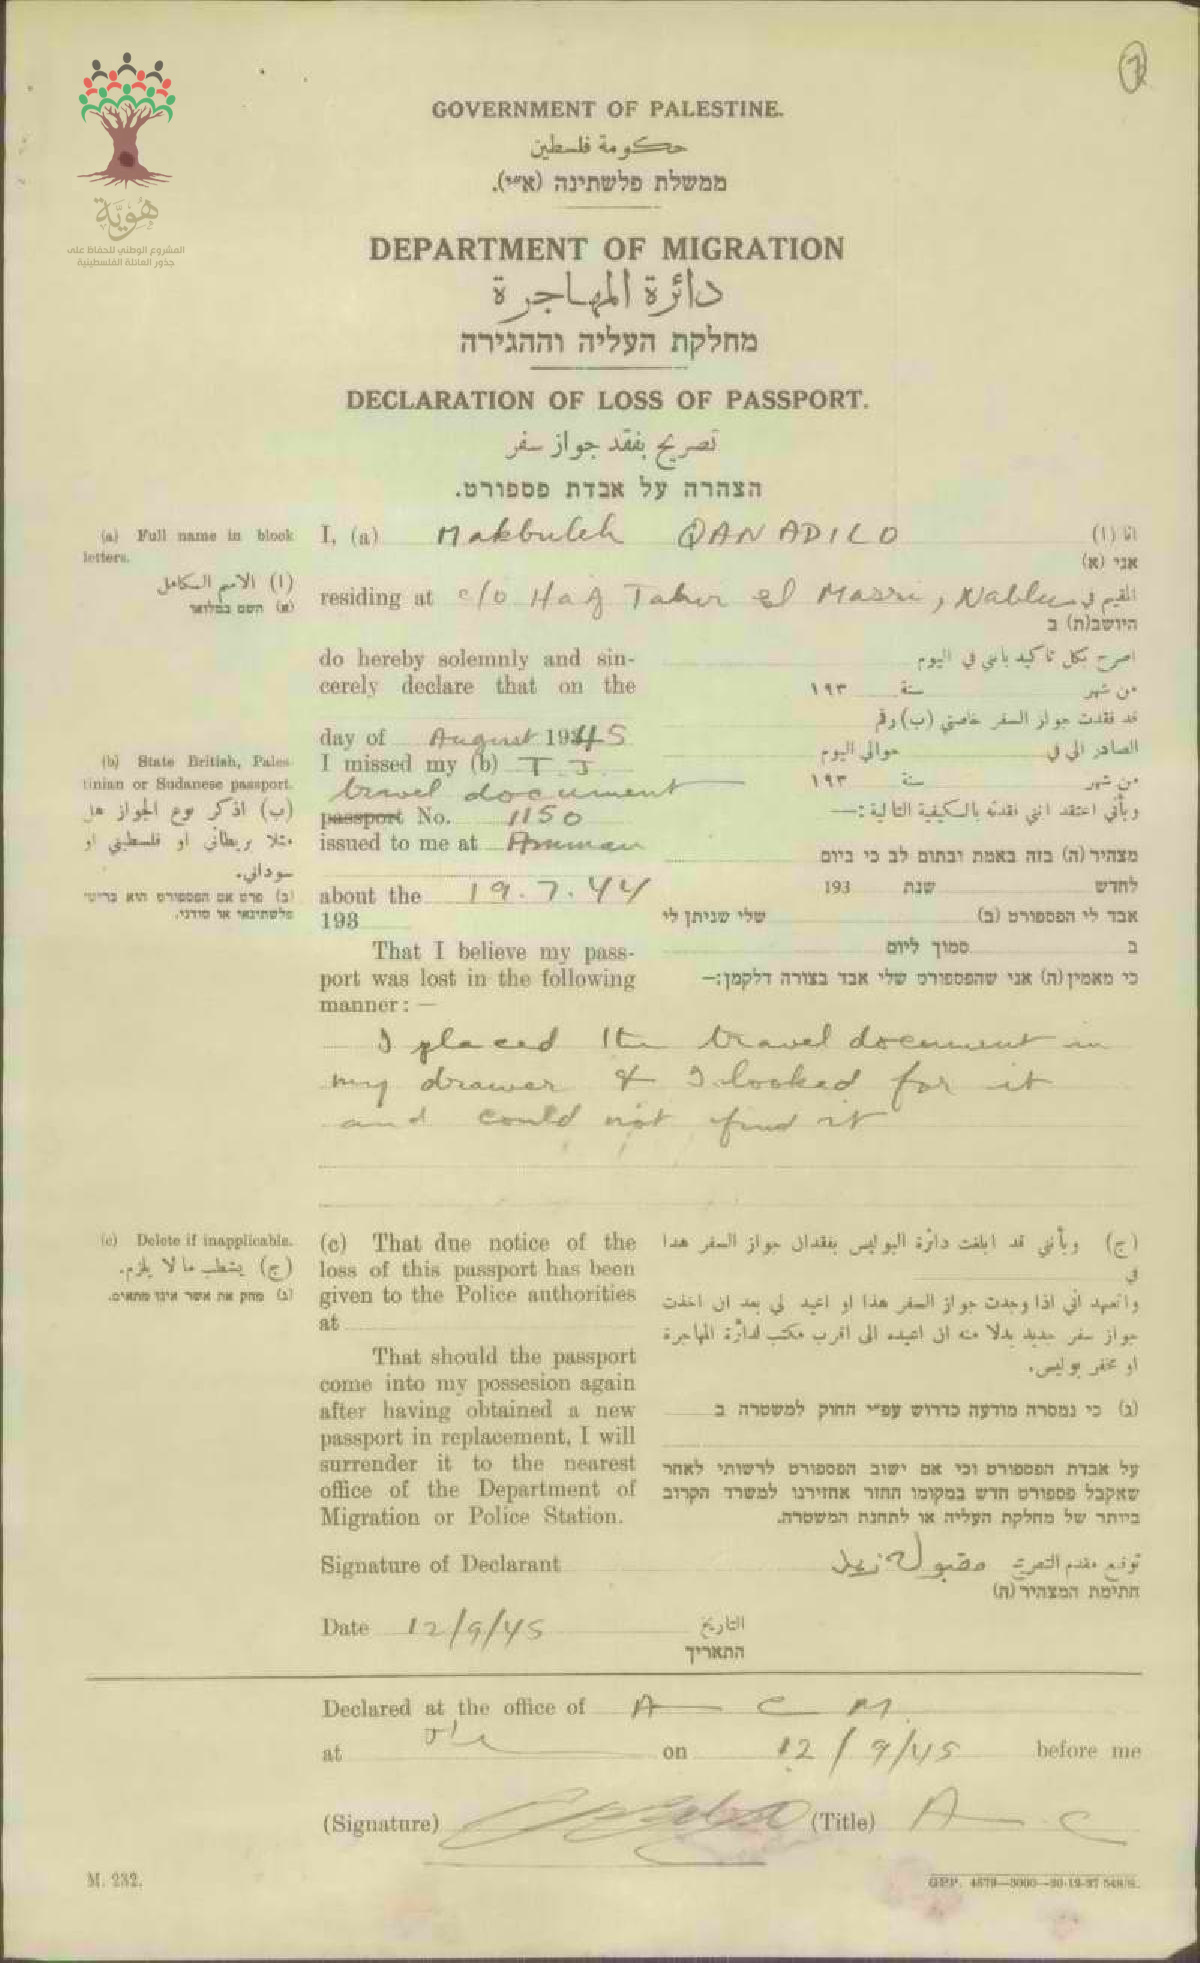 GOVERNMENT OF PALESTINE.
حكومة فلسطين
ממשלת פלשתינה (א״י).
هُوِيَّة
المشروع الوطني للحفاظ على
جذور العائلة الفلسطينية
DEPARTMENT OF MIGRATION
دائرة المهاجرة
מחלקת העליה וההגירה
DECLARATION OF LOSS OF PASSPORT.
تصريح بفقد جواز سفر
הצהרה על אבדת פספורט.
(a) Full name in block letters.
(ا) الاسم الكامل
(א) השם במלואו
I, (a) Makbuleh QANADILO
انا (ا)
אני (א)
residing at c/o Haj Taher el Masri, Nablus
المقيم في
היושב(ת) ב
do hereby solemnly and sin-
cerely declare that on the
day of August 1945
I missed my (b) T. J.
travel document
passport No. 1150
issued to me at Amman
about the 19.7.44
193
اصرح بكل تاكيد باني في اليوم
من شهر سنة ١٩٣
قد فقدت جواز السفر خاصتي (ب) رقم
الصادر الي في حوالي اليوم
من شهر سنة ١٩٣
وبأني اعتقد انني فقدته بالكيفية التالية:—
מצהיר(ה) בזה באמת ובתום לב כי ביום
לחדש שנת 193
אבד לי הפספורט (ב) שלי שניתן לי
ב סמוך ליום
כי מאמין(ה) אני שהפספורט שלי אבד בצורה דלקמן:—
(b) State British, Pales-
tinian or Sudanese passport.
(ب) اذكر نوع الجواز هل
مثلا بريطاني او فلسطيني او
سوداني.
(ב) פרט אם הפספורט הוא בריטי
פלשתינאי או סודני.
That I believe my pass-
port was lost in the following
manner: —
I placed the travel document in
my drawer & I looked for it
and could not find it
(c) Delete if inapplicable.
(ج) يشطب ما لا يلزم.
(ג) מחק את אשר אינו מתאים.
(c) That due notice of the
loss of this passport has been
given to the Police authorities
at
That should the passport
come into my possesion again
after having obtained a new
passport in replacement, I will
surrender it to the nearest
office of the Department of
Migration or Police Station.
(ج) وبأنني قد ابلغت دائرة البوليس بفقدان جواز السفر هذا
في
واتعهد اني اذا وجدت جواز السفر هذا او اعيد لي بعد ان اخذت
جواز سفر جديد بدلا منه ان اعيده الى اقرب مكتب لدائرة المهاجرة
او مخفر بوليس.
(ג) כי נמסרה מודעה כדרוש עפ״י החוק למשטרה ב
על אבדת הפספורט וכי אם ישוב הפספורט לרשותי לאחר
שאקבל פספורט חדש במקומו החזר אחזירנו למשרד הקרוב
ביותר של מחלקת העליה או לתחנת המשטרה.
Signature of Declarant
مقبولة
توقيع مقدم التصريح
חתימת המצהיר(ה)
Date 12/9/45
التاريخ
התאריך
Declared at the office of A C M.
at on 12/9/45 before me
(Signature) (Title) A C
M. 232.
GPP. 4579—3000—30-12-37 548/S.